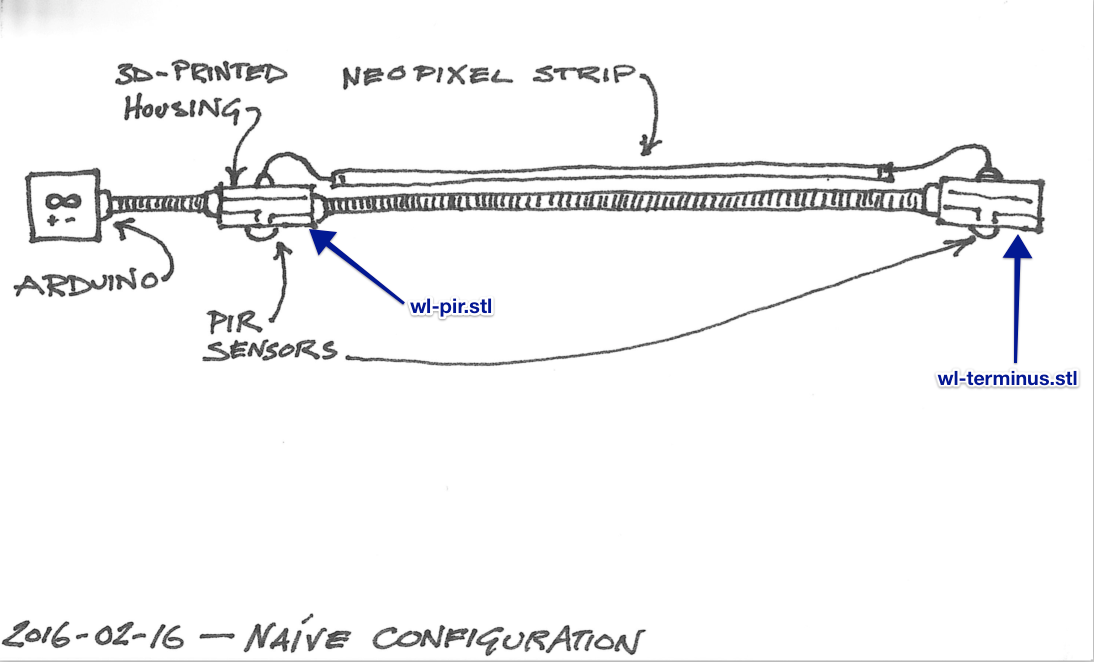 3D-PRINTED
HOUSING
NEOPIXEL STRIP
∞
+ -
ARDUINO
wl-pir.stl
PIR
SENSORS
wl-terminus.stl
2016-02-16 — NAÍVE CONFIGURATION